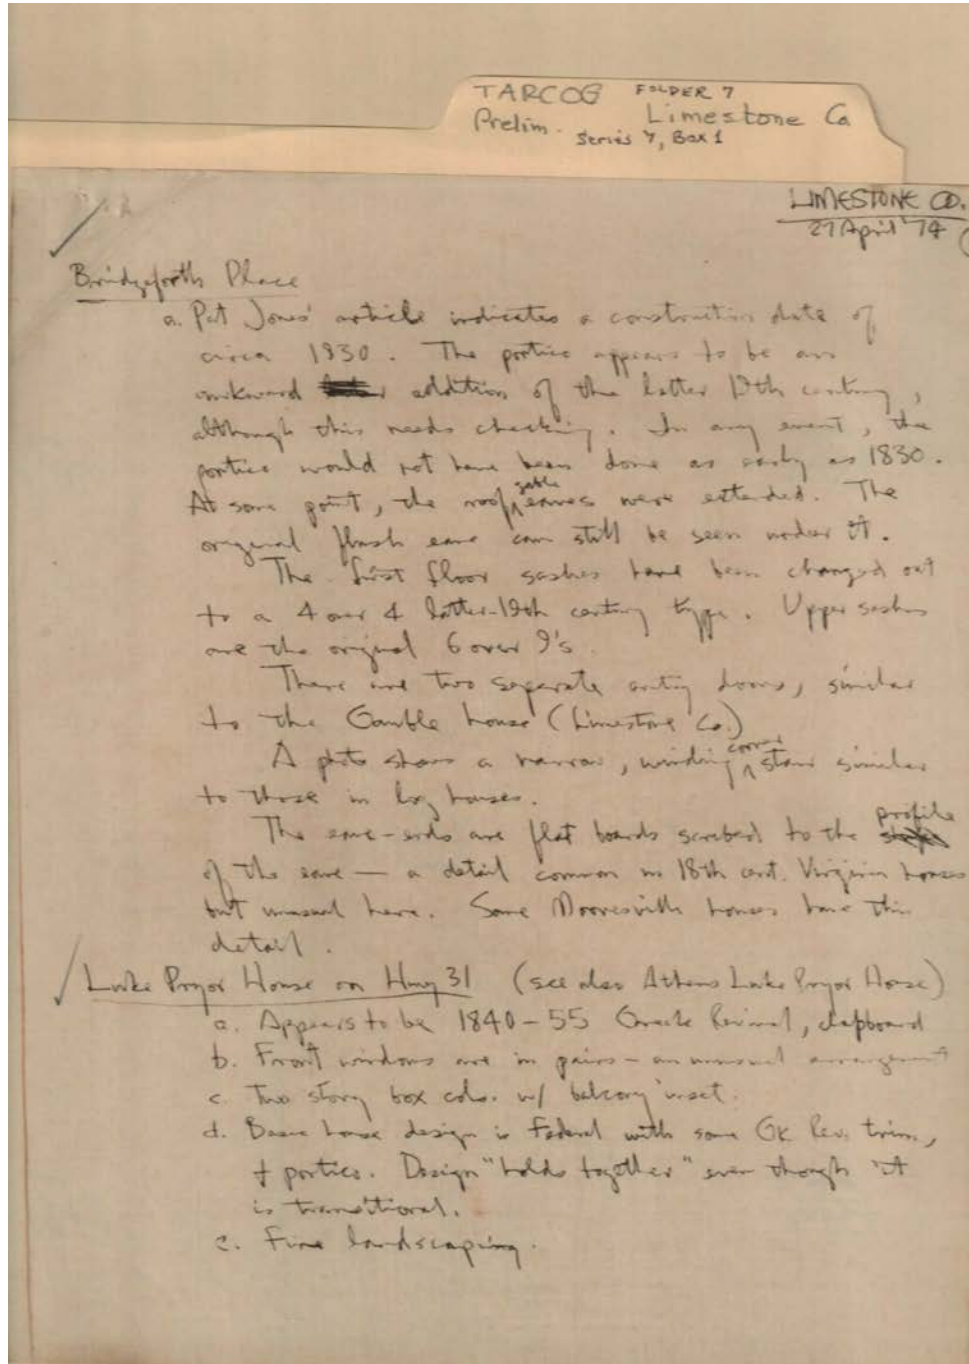 TARCOG FOLDER 7
Prelim. Limestone Co
Series 7, Box 1
LIMESTONE CO.
27 April '74
Bridgeforth Place
a. Pat Jones' article indicates a construction date of
circa 1830. The portico appears to be an
awkward addition of the latter 19th century,
although this needs checking. In any event, the
portico would not have been done as early as 1830.
At some point, the roof gable eaves were extended. The
original flush eave can still be seen under it.
The first floor sashes have been changed out
to a 4 over 4 latter-19th century type. Upper sashes
are the original 6 over 9's.
There are two separate entry doors, similar
to the Gamble house (Limestone Co.)
A photo shows a narrow, winding corner stair similar
to those in log houses.
The eave-ends are flat boards scribed to the profile
of the eave — a detail common in 18th cent. Virginia houses
but unusual here. Some Mooresville houses have this
detail.
Luke Pryor House on Hwy 31 (see also Athens Luke Pryor House)
a. Appears to be 1840-55 Greek Revival, clapboard
b. Front windows are in pairs - an unusual arrangement
c. Two story box cols. w/ balcony inset.
d. Basic house design is Federal with some Gk Rev. trim,
+ portico. Design "holds together" even though it
is transitional.
e. Fine landscaping.